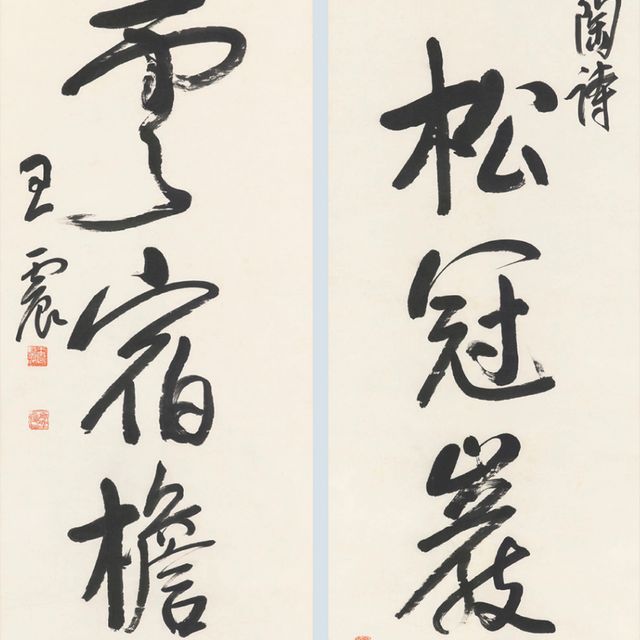 陶詩
松冠巖
雲宿檐
王震